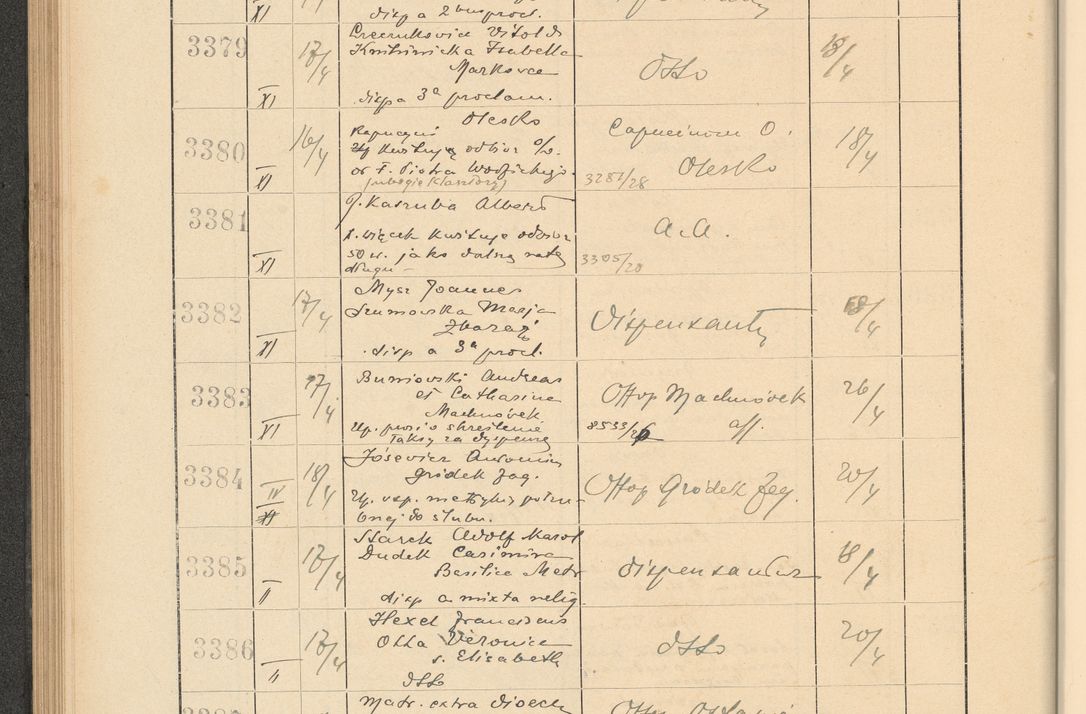 XI
disp a 2bus procl.
3379
17/4
XI
Witold
Izabella
Markowa
disp a 3a proclam.
Otto
18/4
3380
16/4
XI
Olesko
Kapucyni
kwitują odbiór
or F. Piotra
Capucinom O.
Olesko
3281/28
18/4
3381
XI
J. Kaszuba Albert
kwituje odbiór
50 zł. jako dalszą ratę
długu
a.a.
3305/28
3382
17/4
XI
Mysz Joannes
Szumowska Maria
Zbaraż
disp a 3a procl.
Dispensantur
18/4
3383
17/4
XI
Buniowski Andreas
et Catharina
Machnówek
Up. prosi o skreślenie
taksy za dyspensę
Offop Machnówek
8533/26
aff.
26/4
3384
18/4
IV
XI
Józewicz Antonin
Gródek Jag.
Up. wsp. metryki potrze-
bnej do ślubu.
Offop Gródek Jag.
20/4
3385
17/4
II
Starek Adolf Karol
Dudek Casimira
Basilica Metr
disp a mixta relig.
dispensantur
18/4
3386
17/4
II
Hexel Franciscus
Otta Veronica
s. Elisabeth
Otto
Otto
20/4
matr. extra dioec